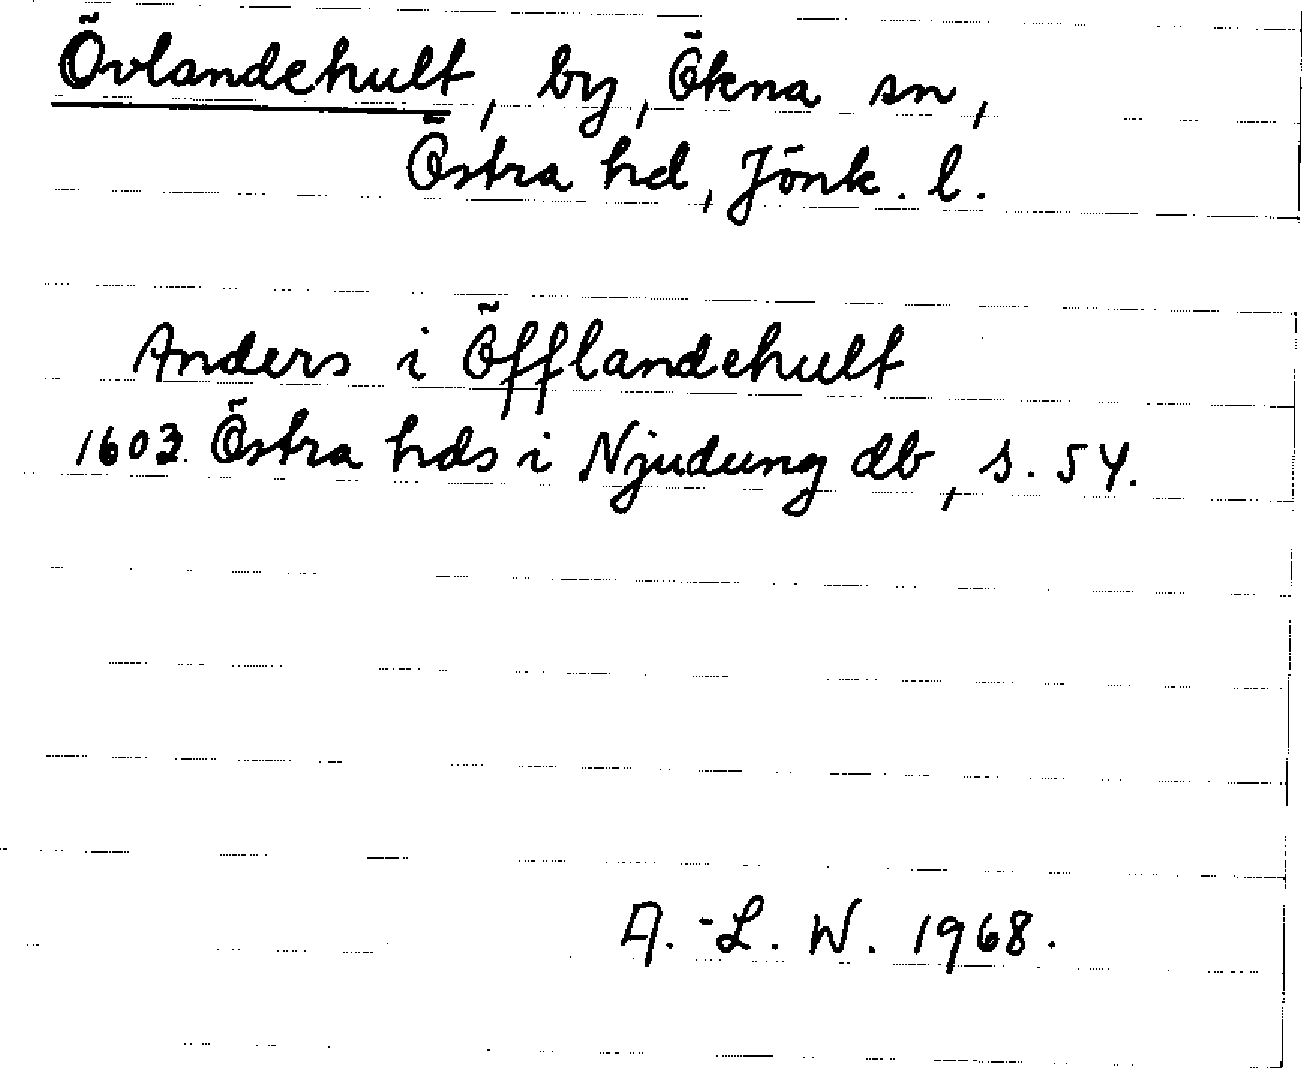 Övlandehult, by, Ökna sn,
Östra hd, Jönk. l.
Anders i Öfflandehult
1603 Östra hds i Njudung db, s. 54.
A.-L. W. 1968.